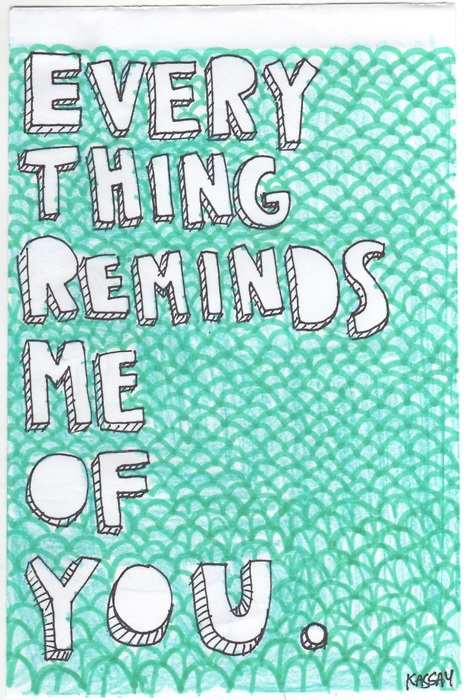 EVERY
THING
REMINDS
ME
OF
YOU.
KASSAY